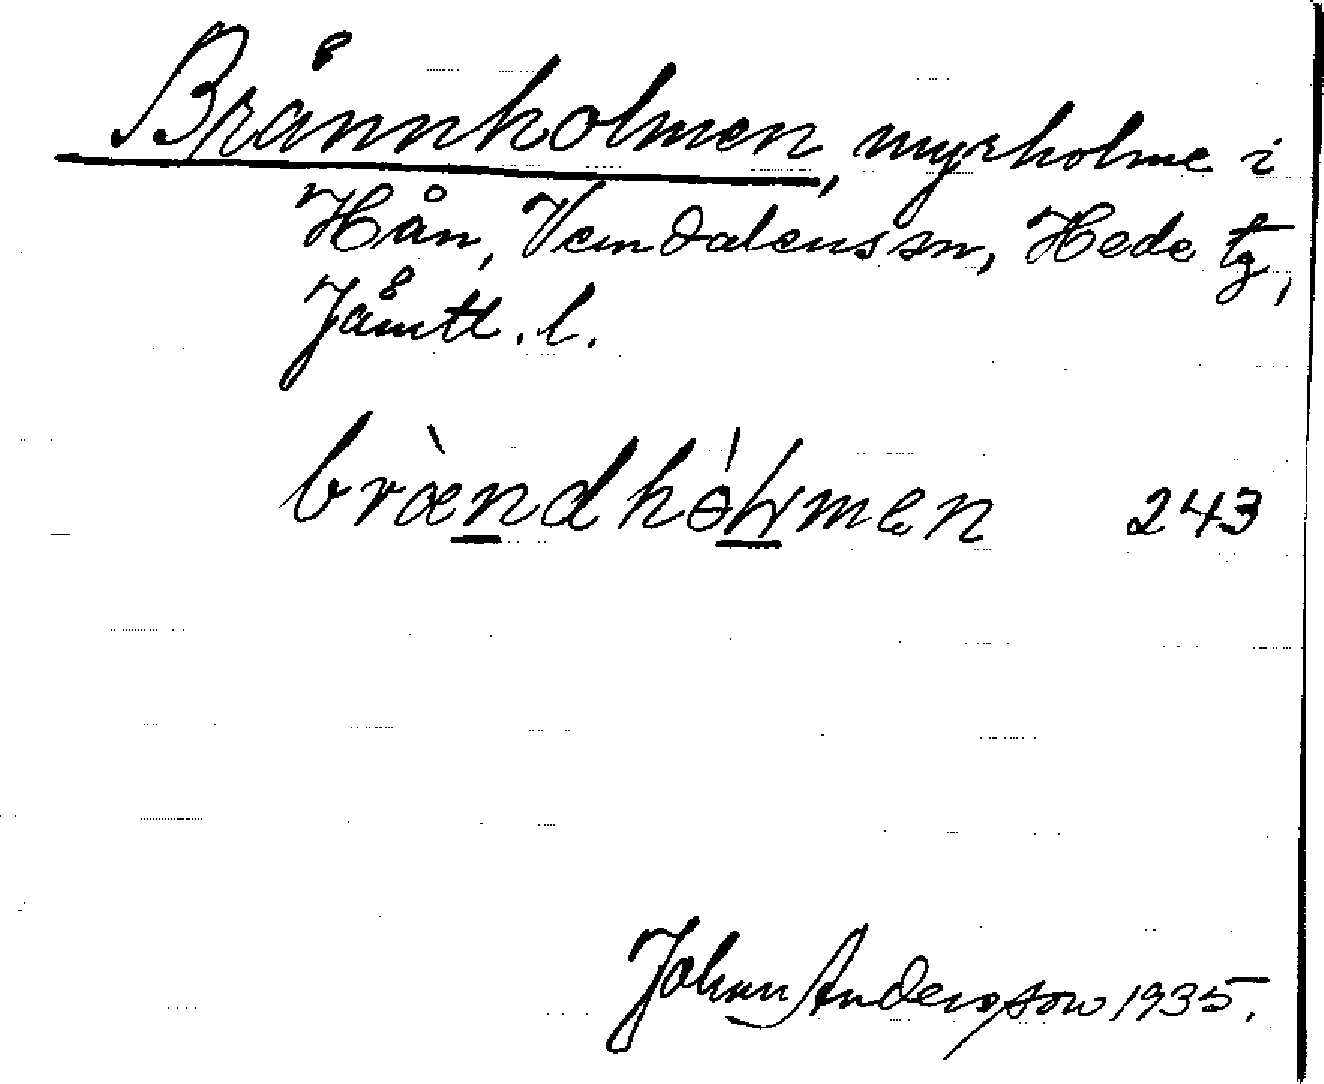 Brännholmen, myrholme i
Hån, Vemdalens sn, Hede tg,
Jämtl. l.
bræ̀ndhɵ́ḷmen 243
Johan Andersson 1935.